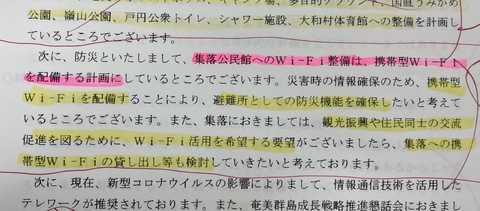 公園、嶺山公園、戸円公衆トイレ、シャワー施設、大和村体育館への整備を計画し
ているところでございます。
次に、防災といたしまして、集落公民館へのＷｉ－Ｆｉ整備は、携帯型Ｗｉ－Ｆｉ
を配備する計画にしているところでございます。災害時の情報確保のため、携帯型
Ｗｉ－Ｆｉを配備することにより、避難所としての防災機能を確保したいと考えて
いるところでございます。また、集落におきましては、観光振興や住民同士の交流
促進を図るために、Ｗｉ－Ｆｉ活用を希望する要望がございましたら、集落への携
帯型Ｗｉ－Ｆｉの貸し出し等も検討していきたいと考えております。
次に、現在、新型コロナウイルスの影響によりまして、情報通信技術を活用した
テレワークが推奨されております。また、奄美群島成長戦略推進懇話会におきまし